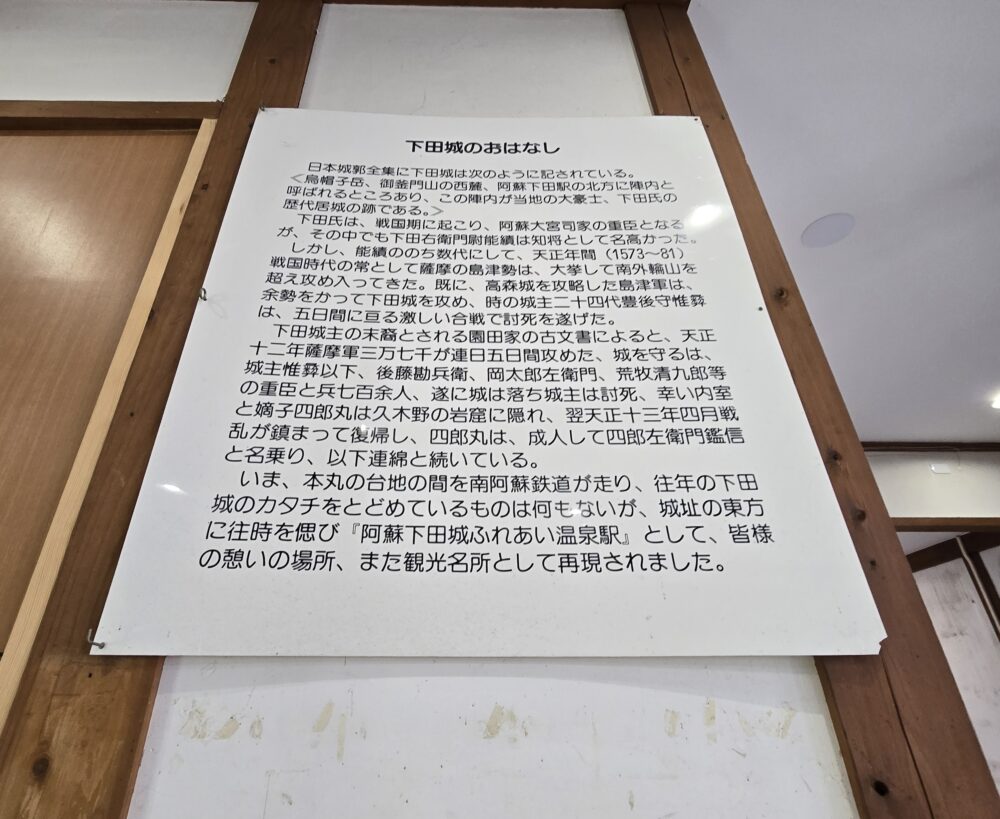 下田城のおはなし
日本城郭全集に下田城は次のように記されている。
＜烏帽子岳、御釜門山の西麓、阿蘇下田駅の北方に陣内と
呼ばれるところあり、この陣内が当地の大豪士、下田氏の
歴代居城の跡である。＞
下田氏は、戦国期に起こり、阿蘇大宮司家の重臣となる
が、その中でも下田右衛門尉能績は知将として名高かった。
しかし、能績ののち数代にして、天正年間（1573～81）
戦国時代の常として薩摩の島津勢は、大挙して南外輪山を
超え攻め入ってきた。既に、高森城を攻略した島津軍は、
余勢をかって下田城を攻め、時の城主二十四代豊後守惟彜
は、五日間に亘る激しい合戦で討死を遂げた。
下田城主の末裔とされる園田家の古文書によると、天正
十二年薩摩軍三万七千が連日五日間攻めた、城を守るは、
城主惟彜以下、後藤勘兵衛、岡太郎左衛門、荒牧清九郎等
の重臣と兵七百余人、遂に城は落ち城主は討死、幸い内室
と嫡子四郎丸は久木野の岩窟に隠れ、翌天正十三年四月戦
乱が鎮まって復帰し、四郎丸は、成人して四郎左衛門鑑信
と名乗り、以下連綿と続いている。
いま、本丸の台地の間を南阿蘇鉄道が走り、往年の下田
城のカタチをとどめているものは何もないが、城址の東方
に往時を偲び『阿蘇下田城ふれあい温泉駅』として、皆様
の憩いの場所、また観光名所として再現されました。